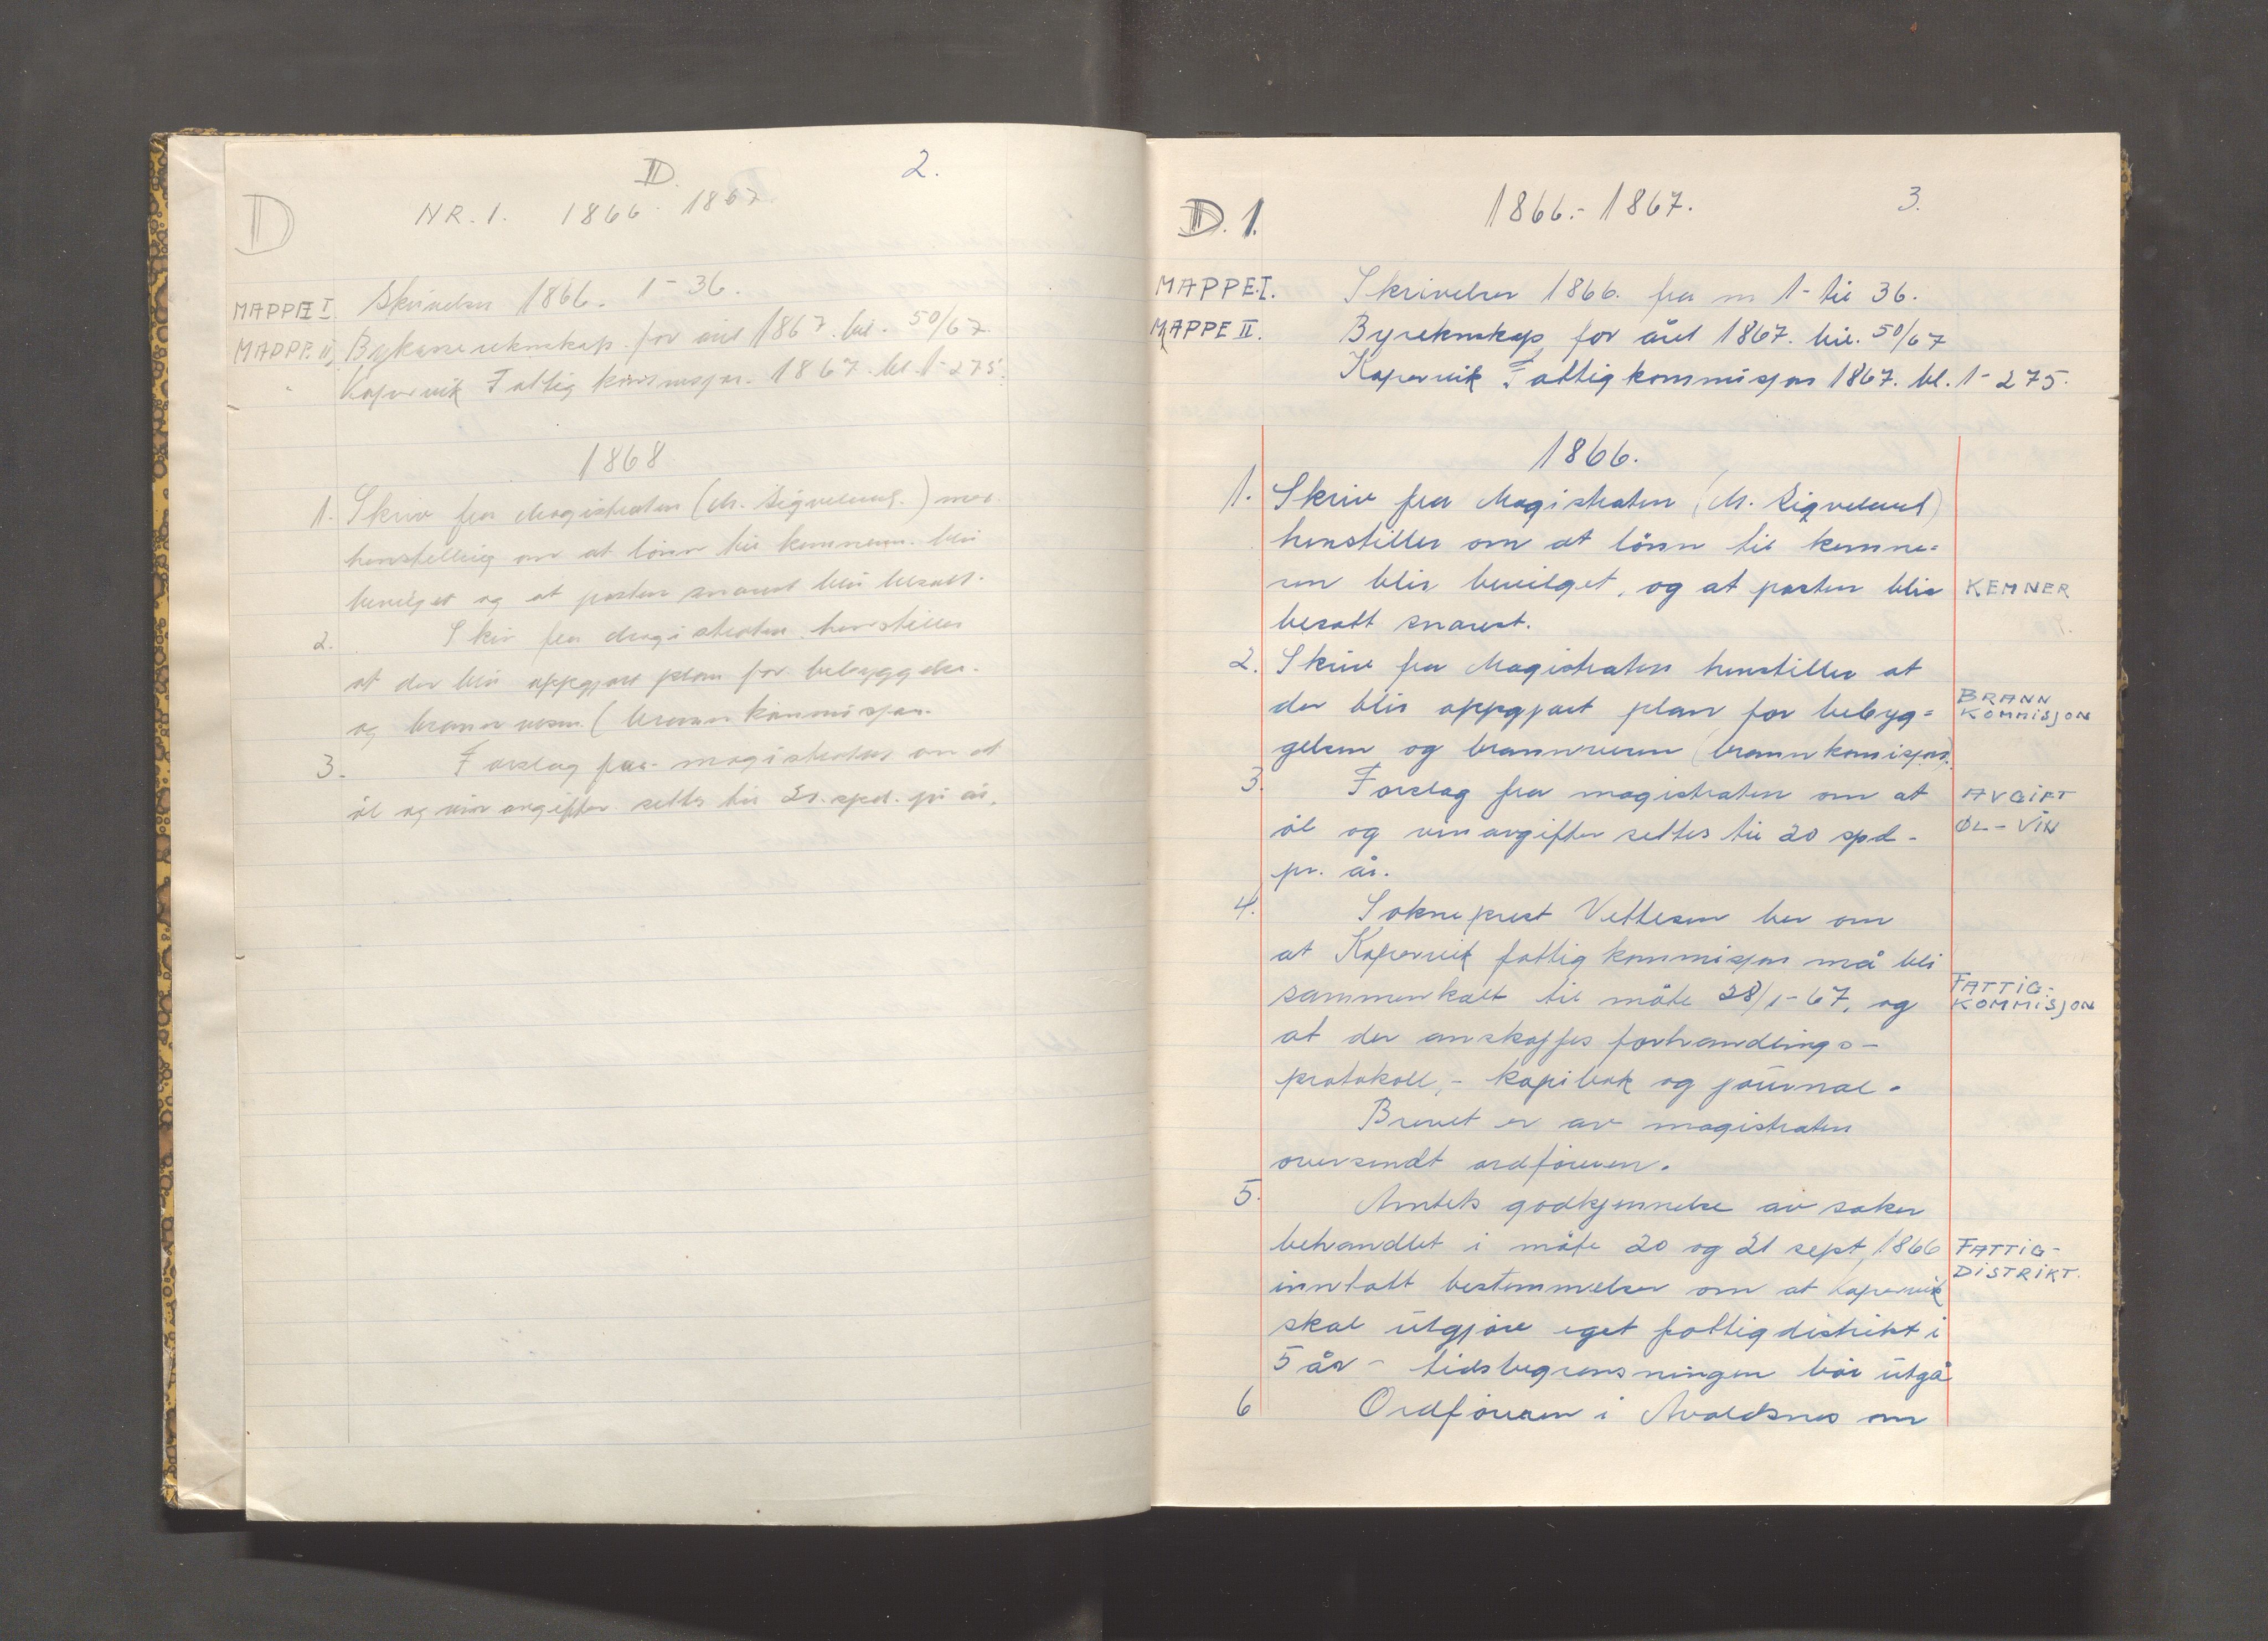 D. 2.
D NR. 1. 1866. 1867.
MAPPE I. Skrivelser 1866. 1 - 36.
MAPPE II. Bykassereknskap for året 1867. bil. 50/67.
" Kopervik Fattigkommisjon. 1867. bl. 1-275.
1868
1. Skriv fra Magistraten (M. Sigvelund.) med
henstilling om at lönn til kemneren. blir
bevilget og at posten snarest blir besatt.
2. Skriv fra Magistraten henstiller
at der blir oppgjort plan for bebyggelse.
og brannvesen. (brannkommisjon.
3. Forslag fra magistraten om at
öl og vin avgiften settes til 20. spd. pr år.
D. 1. 1866.- 1867. 3.
MAPPE.I. Skrivelser 1866. fra nr 1- til 36.
MAPPE II. Byreknskap, for året 1867. bil. 50/67
Kopervik Fattigkommisjon 1867. bl. 1- 275.
1866.
1. Skriv fra Magistraten (M. Sigvelund)
henstiller om at lönn til kemne=
ren blir bevilget, og at posten blir KEMNER
besatt snarest.
2. Skriv fra Magistraten henstiller at
der blir oppgjort plan for bebyg= BRANN
KOMMISJON
gelsen og brannvesen (brannkomisjon).
3. Forslag fra magistraten om at AVGIFT
öl og vinavgiften settes til 20 spd - ØL - VIN
pr. år.
4. Sokneprest Vettesen ber om
at Kopervik fattigkommisjon må bli
sammenkalt til möte 28/1-67, og FATTIG-
KOMMISJON
at der anskaffes forhandlings-
protokoll, - kopibok og journal.
Brevet er av magistraten
oversendt ordföreren.
5. Amtets godkjennelse av saker
behandlet i möte 20 og 21 sept, 1866 FATTIG-
DISTRIKT.
inntatt bestemmelser om at Kopervik
skal utgjöre eget fattigdistrikt i
5 år - tidsbegrensningen bör utgå
6 Ordföreren i Avaldsnes om